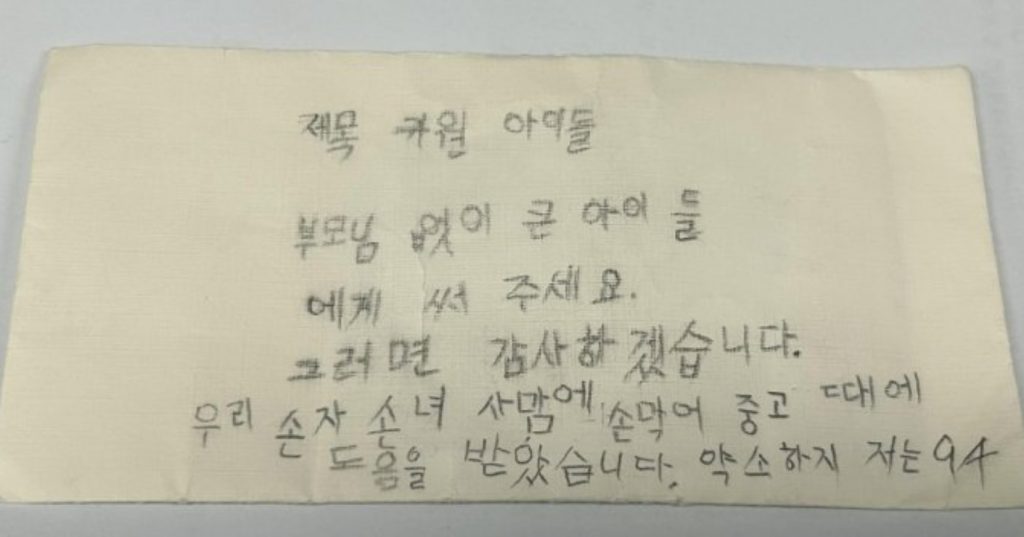 제목 키월 아이들
부모님 없이 큰 아이들
에게 써 주세요.
그러면 감사하겠습니다.
우리 손자 손녀 사맘에 손막어 중고 때에
도음을 받았습니다. 약소하지 저는 94